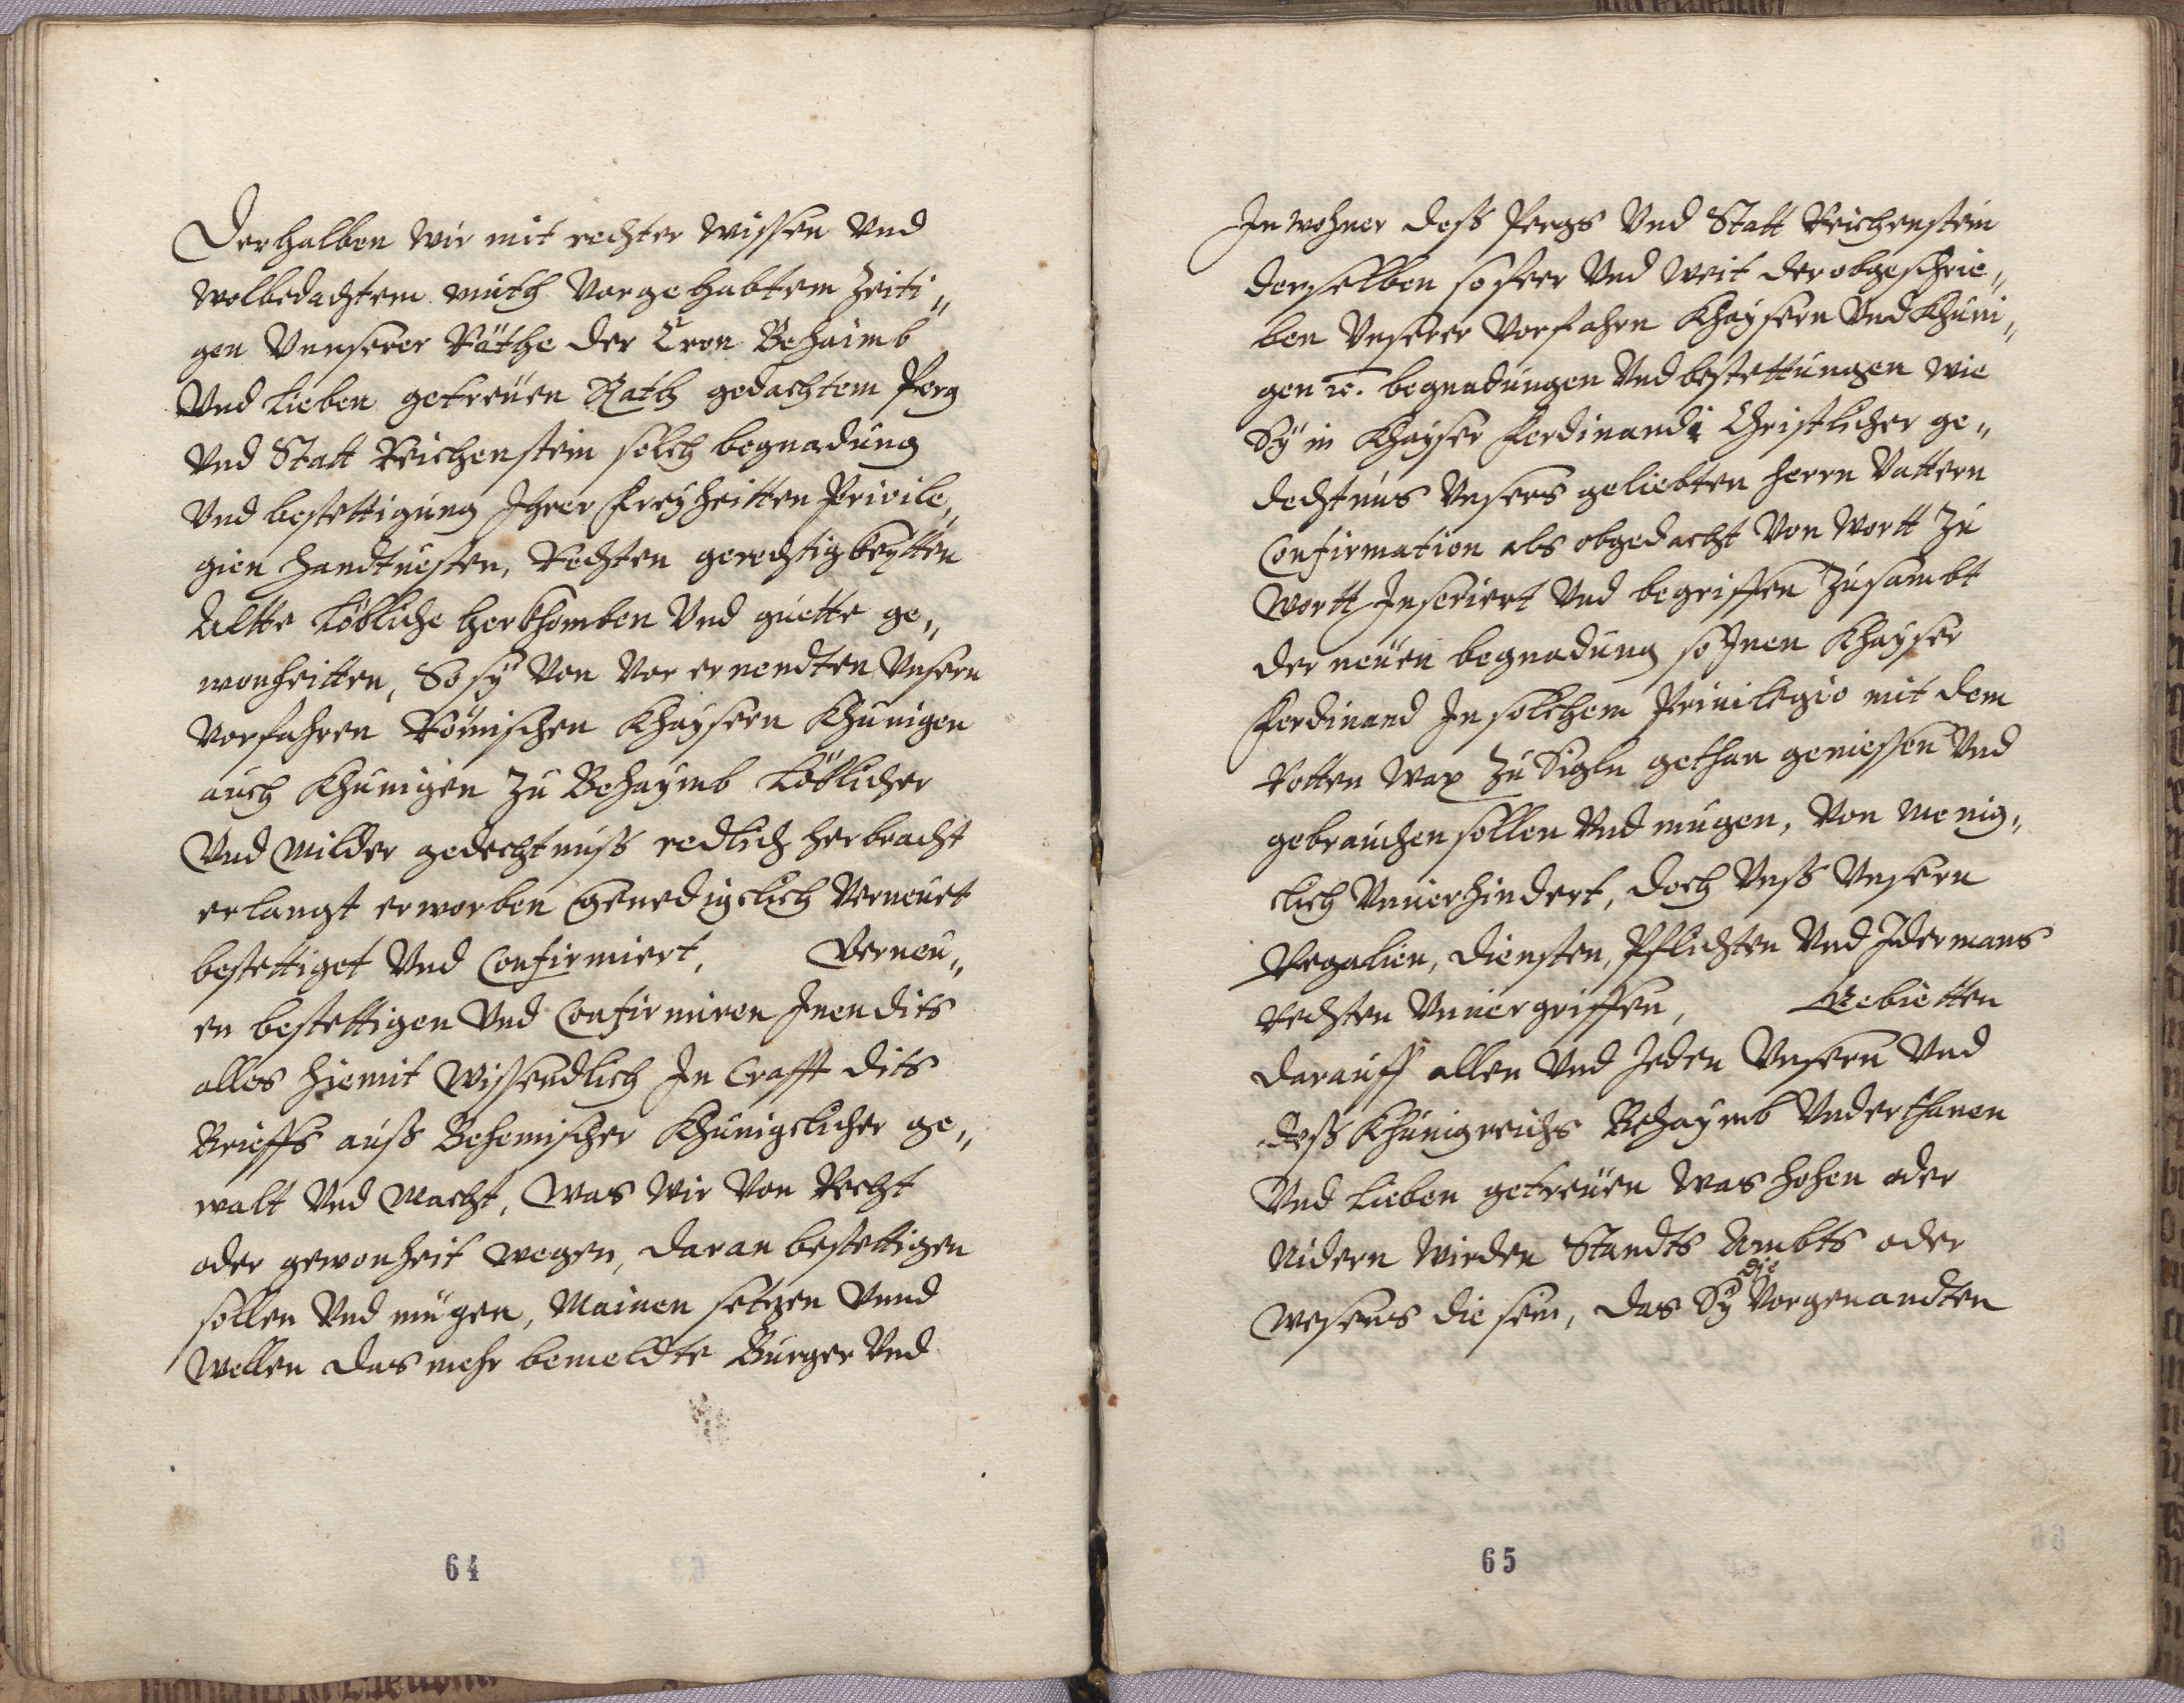 Derhalben wir mit rechter wissen vnd
wolbedachtem muth vorgehabtem zeiti„
gen vnnserer Räthe der Cron Behaimb
vnd lieben getreüen Rath gedachtem Perg
vnd Statt Reichenstein solch begnadung
vnd bestettigung Ihrer freyheitten Privile„
gien handtuesten, Rechten gerechtigkeytten
Altte löbliche herkhomben vnd guette ge„
wonheitten, So sÿ von vor ernendten vnsern
vorfahren Römischen Khaysern Khunigen
auch Khunigen zu Behaymb löblicher
vnd milder gedechtnuss redlich herbracht
erlangt erworben Genedigclich verneuet
bestettiget vnd Confirmiert, Verneu„
en bestettigen vnd Confirmiren Inen dits
alles hiemit wissendlich In Crafft dits
Brieffs auss Behemischer Khünigclicher ge„
walt vnd macht, was wir von Recht
oder gewonheit wegen, daran bestettigen
sollen vnd mügen, Mainen setzen vnnd
wellen das mehr bemeldte Burger vnd
64
Inwohner dess Pergs vnd Statt Reichenstein
derselben sofeer vnd weit der obgeschrie„
ben vnserer vorfahrn Khaysern vnd Khuni„
gen ꝛc. begnadungen vnd bestettungen wie
Sÿ in Khayser Ferdinandi Christlicher ge„
dechtnus vnsers geliebten herrn Vattern
Confirmation als obgedacht von wortt zu
wortt Inseriert vnd begriffen zusambt
der neüen begnadung so Inen Khayser
Ferdinand In solchem Priuilegio mit dem
Rotten wax zu Sigln gethan geniessen vnd
gebrauchen sollen vnd mugen, von menig„
clich vnuerhindert, doch vnss vnsern
Regalien, diensten, Pflichten vnd Idermans
Rechten vnuergriffen, Gebietten
darauff allen vnd Jeden vnsern vnd
dess Khünigreichs Behaymb vnderthanen
vnd lieben getreüen was hohen oder
Nidern wirden Standts Ambts oder
wesens die sein, das Sÿ die vorgenandten
65